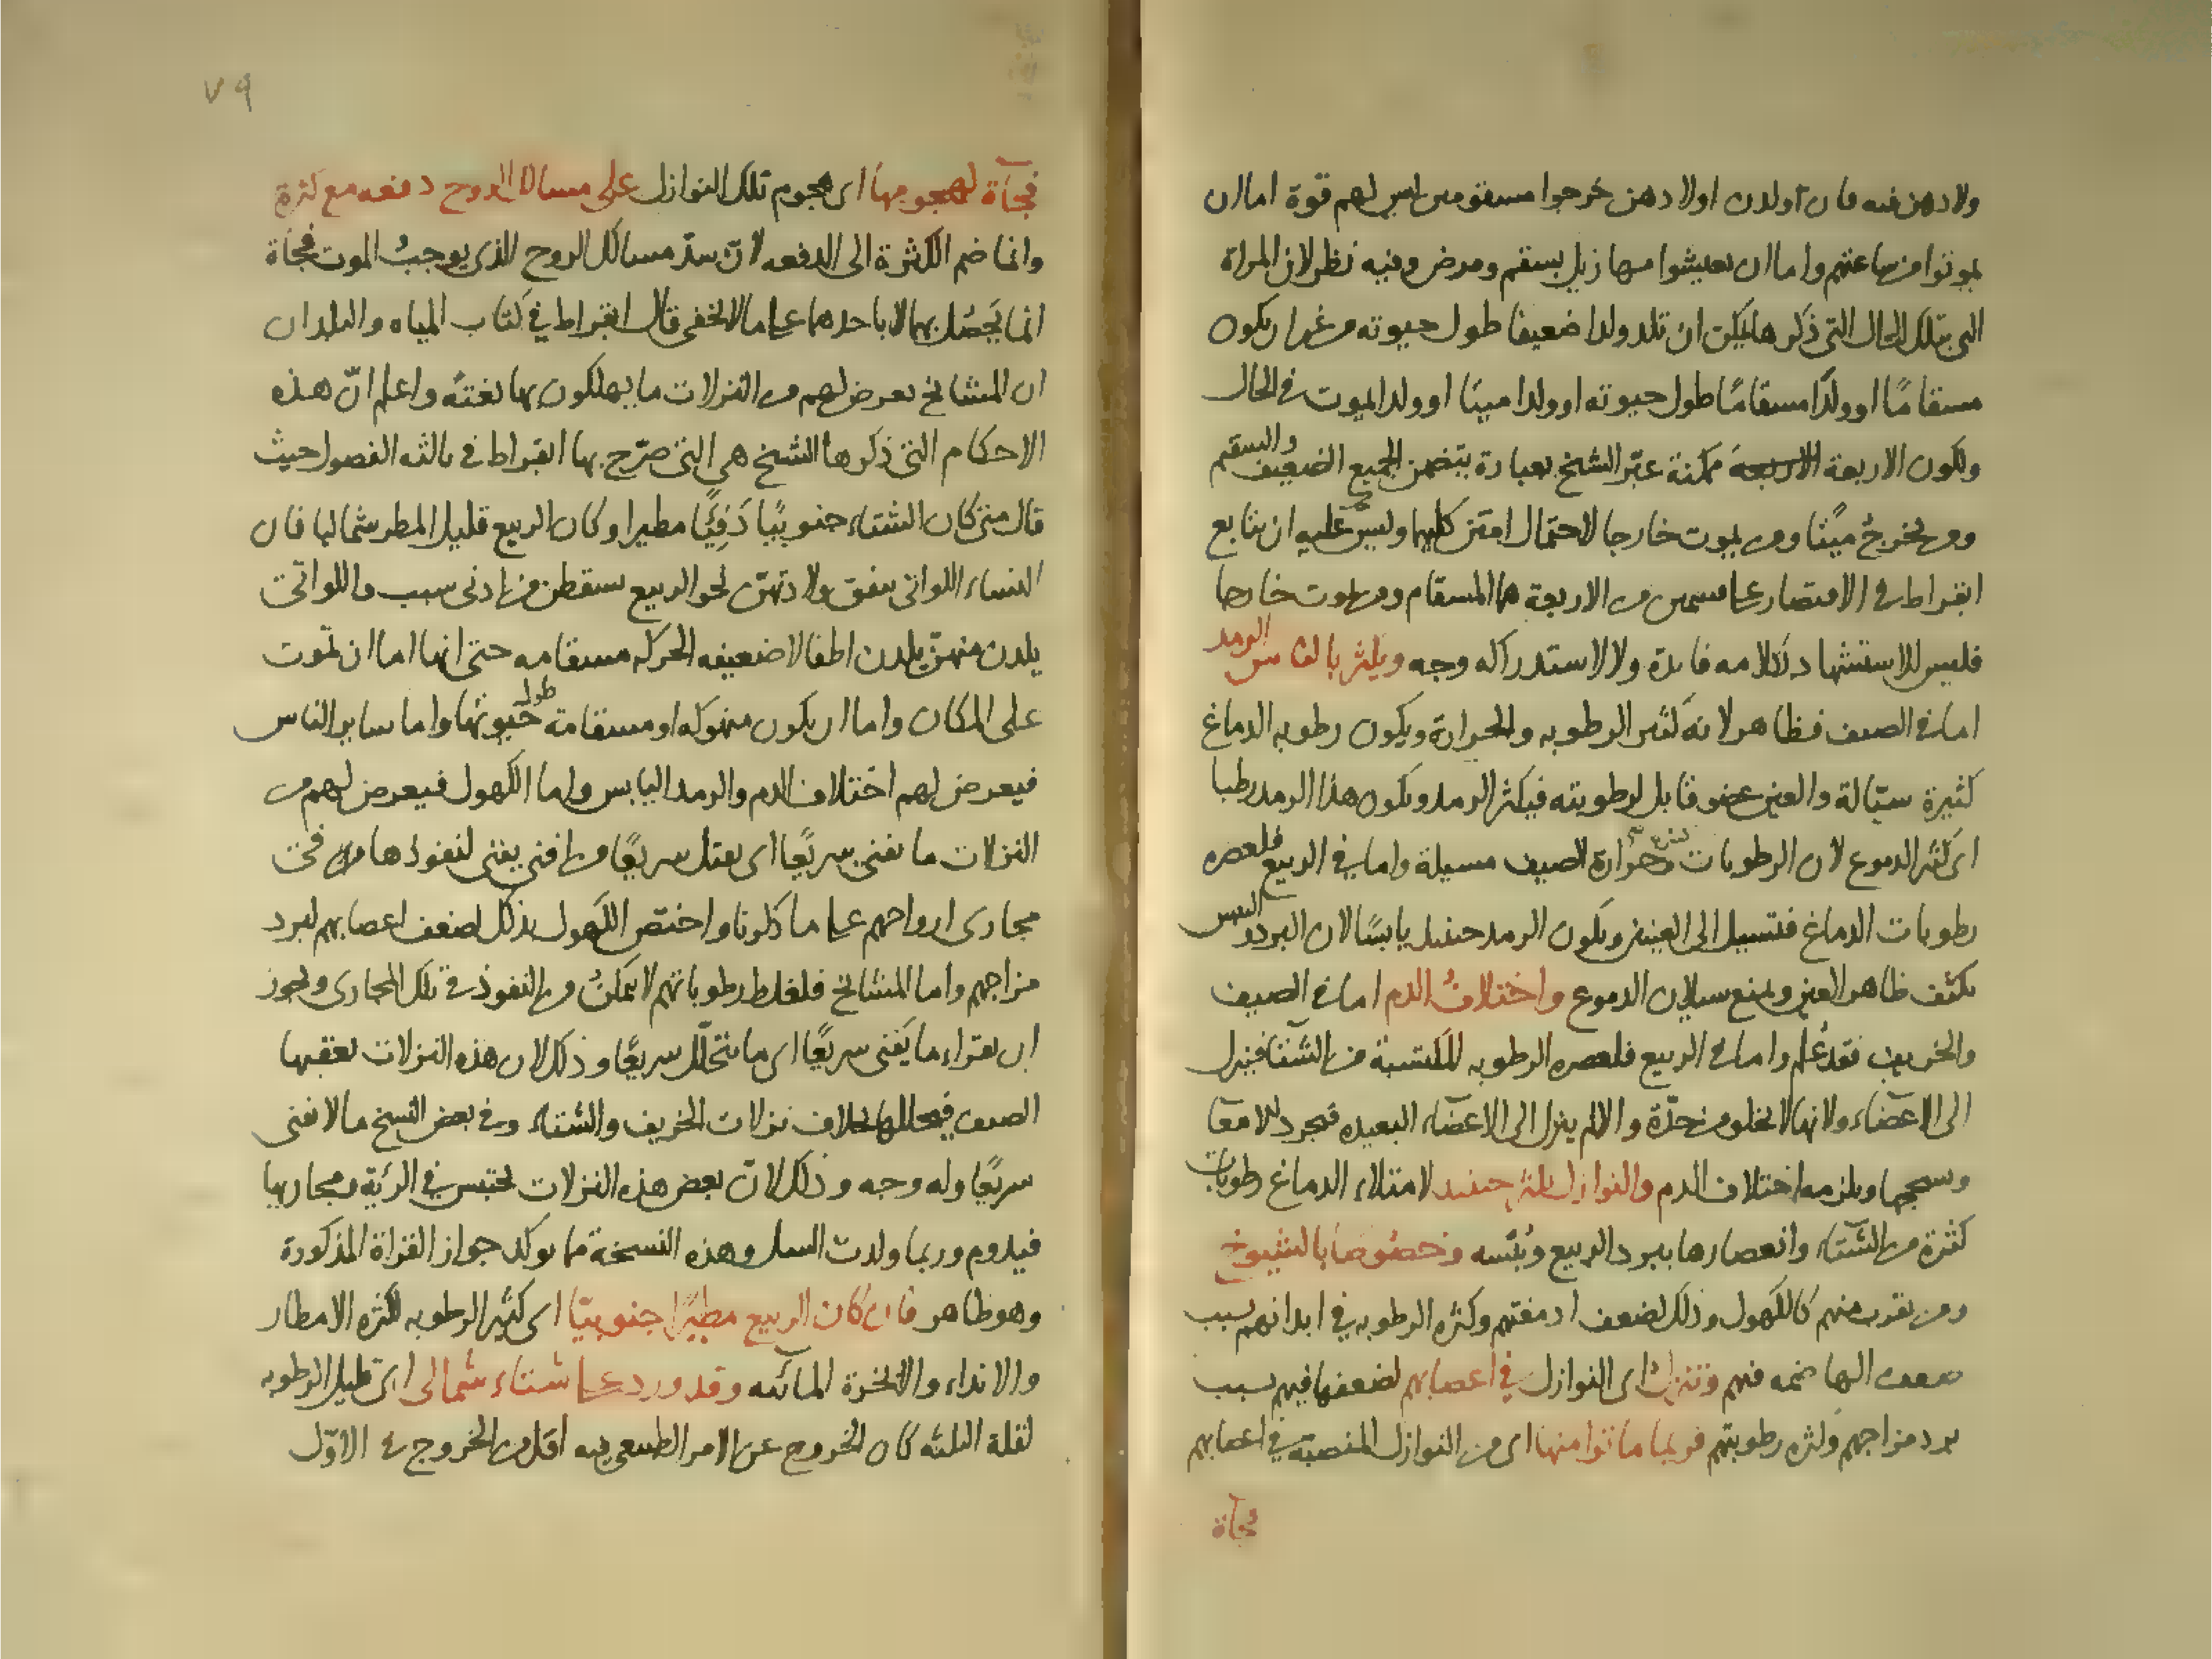 ولادهن فيه فان آولدن اولادهن خرجوا مسقومين ليس لهم قوة اما ان
يموتوا من ساعتهم واما ان يعيشوا مهازيل بسقم ومرض وفيه نظر لان المراة
التى بتلك الحال التى ذكرها يمكن ان تلد ولدا ضعيفا طول حيوته من غير ان يكون
مسقامًا او ولدًا مسقامًا طول حيوته او ولدا ميتًا او ولدا يموت في الحال
ولكون الاربعة الاربعة ممكنة عبّر الشيخ بعبارة يتضمن الجميع الضعيف والسقيم
ومن يخرج ميّتا ومن يموت خارجا لاحتمال كليها وليس عليه ان يتابع
ابقراط في الاقتصار على قسمين من الاربعة هما المسقام ومن يموت خارجا
فليس للاستشهاد بكلامه فايدة ولا لاستدراكه وجه ويكثر بالناس الرمد
اما في الصيف فظاهر لانه كثير الرطوبه والحرارة ويكون رطوبه الدماغ
كثيرة سيّالة والعين عضو قابل لرطوبته فيكثر الرمد ويكون هذا الرمد رطبا
اى كثير الدموع لان الرطوبات وحرارة الصيف مسيلة واما في الربيع فلعصره
رطوبات الدماغ فتسيل الى العينين ويكون الرمد حينئد يابسًا لان البرد واليبس
يكثف ظاهر العين ويمنع سيلان الدموع واختلافُ الدم اما في الصيف
والخريف فقد عُلم واما في الربيع فلعصره الرطوبه المكتسبة من الشتآ فينزل
الى الاعضاء ولانها لا يخلو من حدّة والا لم ينزل الى الاعضآء البعيده فيجرد الامعآ
وسحجها ويلزمه اختلاف الدم والنوازل يكثر حينئد لامتلاء الدماغ رطوبات
كثرة من الشتآء وانعصارها ببرد الربيع ويُبسه وخصُوصًا بالشيوخ
ومن يقرب منهم كالكهول وذلك لضعف ادمغتهم وكثره الرطوبه في ابدانهم بسبب
ضعف الهاضمه فيهم وتنزل اى النوازل في اعصابهم لضعفها فيهم بسبب
برد مزاجهم وكثره رطوبتهم فربما ماتوا منها اى من النوازل المنصبّة في اعصابهم
فجآة
٧٩
فجآة لهجومها اى هجوم تلك النوازل على مسالك الروح دفعه مع كثرة
وانما ضم الكثرة الى الدفعه لانّ سدّ مسالك الروح الذى يوجبُ الموت فجاة
انما يَحصُل بهما لا باحدهما على ما لا يخفى قال ابقراط في كتاب المياه والبلدان
ان المشايخ يعرض لهم من النزلات ما يهلكون بها بغتةً واعلم انّ هذه
الاحكام التى ذكرها الشيخ هى التى صرّح بها ابقراط في ثالثه الفصول حيث
قال متى كان الشتاء جنوبيًا دَفِيًّا مطيرا وكان الربيع قليل المطر شماليا فان
النساء اللواتى يتفق ولادتهنّ نحو الربيع يسقطن من ادنى سبب واللواتى
يلدن منهنّ يلدن اطفالا ضعيفه الحركه مسقامه حتى انها اما ان تموت
على المكان واما ان يكون منهوكه او مسقامة طول حيوتها واما ساير الناس
فيعرض لهم اختلاف الدم والرمد اليابس واما الكهول فيعرض لهم من
النزلات ما يفنى سريعًا اى يقتل سريعًا من افنى يفنى لنفوذها في
مجارى ارواحهم على ما ذكرنا واختصّ الكهول بذلك لضعف اعصابهم لبرد
مزاجهم واما المشايخ فلغلظ رطوباتهم لا يمكنُ من النفوذ في تلك المجارى ويجوز
ان يقراء ما يَفنى سريعًا اى ما يتحلّل سريعًا وذلك لان هذه النزلات يعقبها
الصيف فيحللها بخلاف نزلات الخريف والشتاء وفي بعض النسخ ما لا يفنى
سريعًا وله وجه وذلك لانّ بعض هذه النزلات يحتبس في الرئة ومجاريها
فيدوم وربما ولدت السل وهذه النسخة مما يوكد جواز القراة المذكورة
وهو ظاهر فان كان الربيع مطيرًا جنوبيّا اى كثير الرطوبه لكثره الامطار
والانداء والابخرة المائيه وقد ورد على شتاء شمالى اى قليل الرطوبه
لقلة الثلثه كان الخروج عن الامر الطبيعى فيه اقل من الخروج في الاوّل